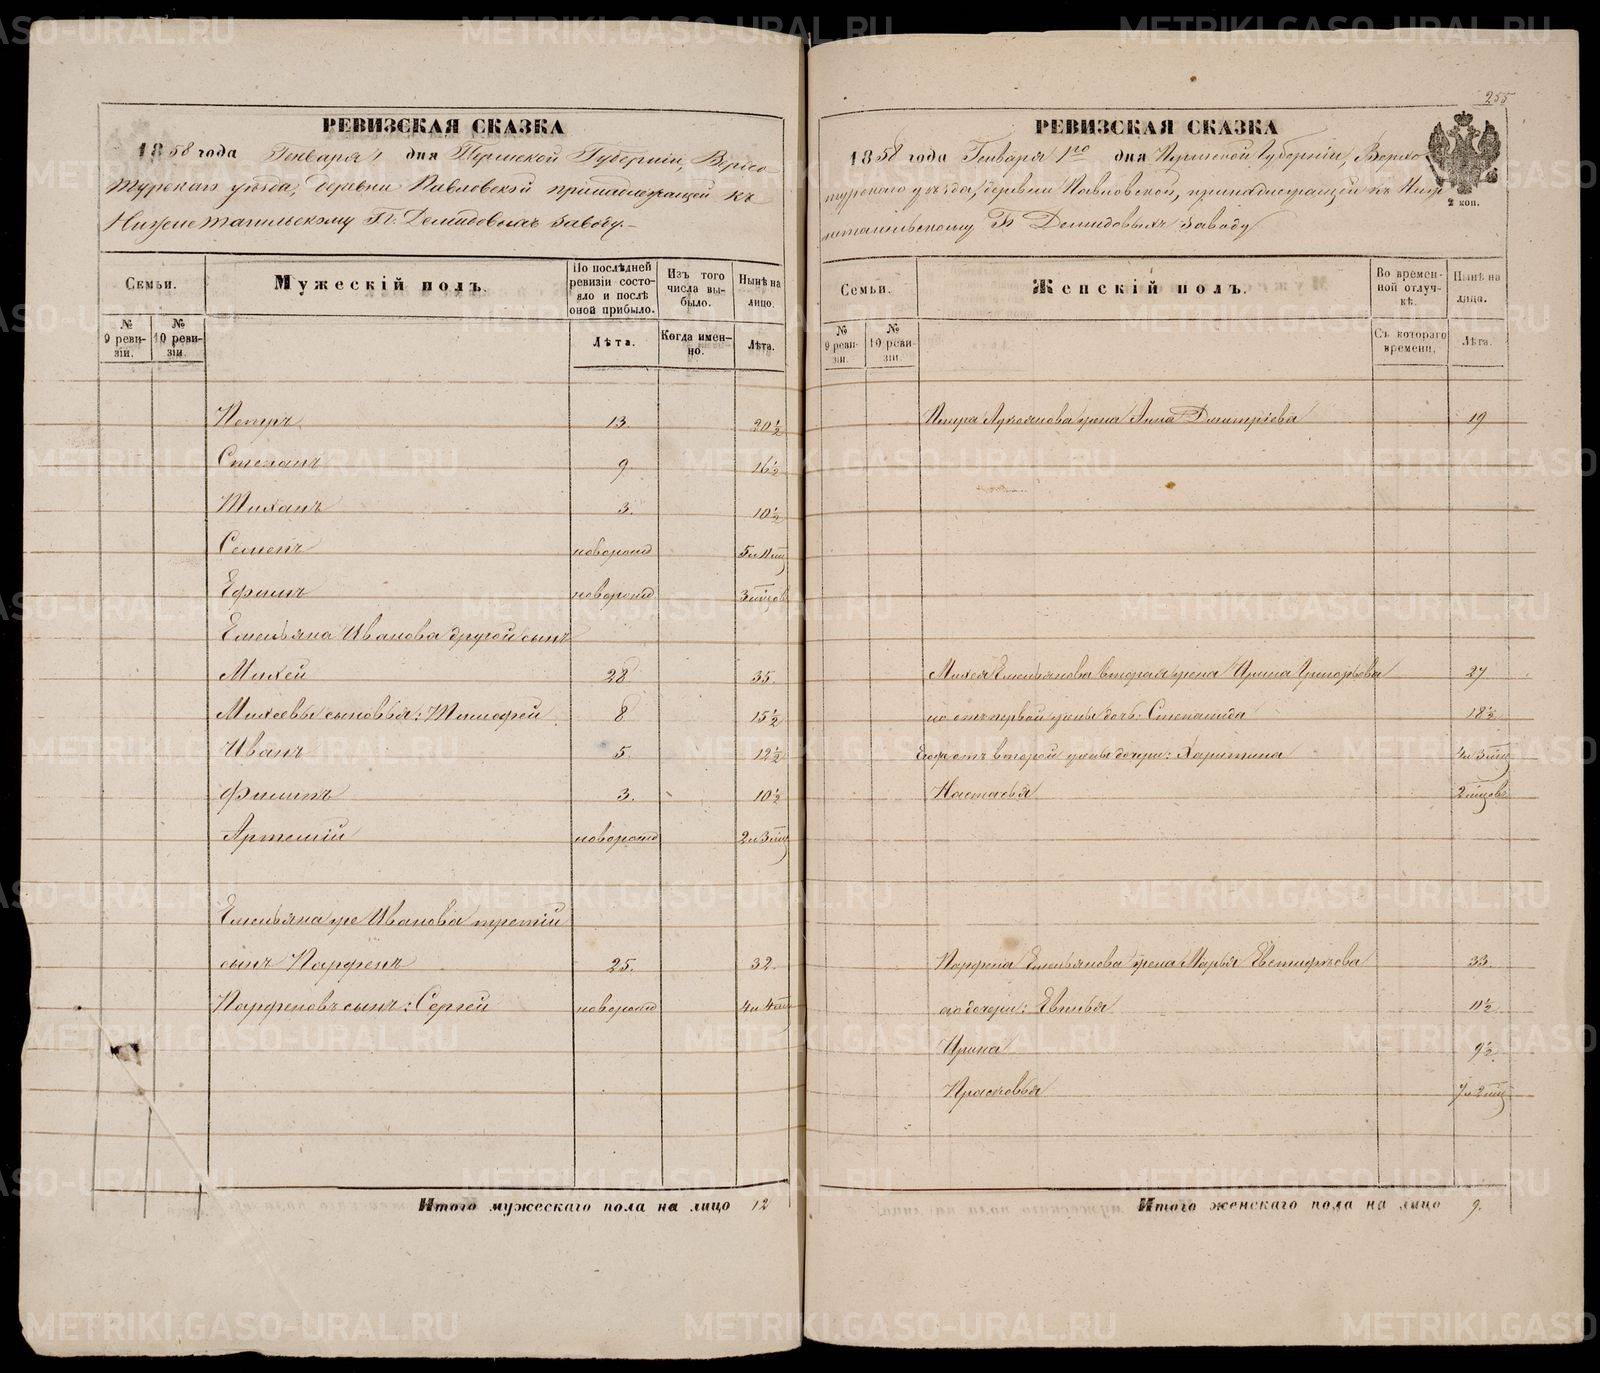 255
РЕВИЗСКАЯ СКАЗКА
1858 года Генваря 1 дня Пермской Губерніи, Верхо
турскаго уѣзда, деревни Павловской принадлежащей къ
Нижнетагильскому Гг. Демидовыхъ заводу.
Семьи.
Мужескій полъ.
По послѣдней ревизіи состояло и послѣ оной прибыло.
Изъ того числа выбыло.
Нынѣ на лицо.
№ 9 ревизіи.
№ 10 ревизіи.
Лѣта.
Когда именно.
Лѣта.
Петръ 13. 20½
Степанъ 9 16½
3. 10½
Семенъ новорожд 5 и 11 мц
Ефимъ новорожд 3 мцов
Емельяна Иванова другой сынъ
Михей 28 35.
Михеевы сыновья: Тимофей 8 15½
Иванъ 5. 12½
Филипъ 3. 10½
Артемій новорожд 2 и 3 мц
Емельяна же Иванова третій
сынъ Парфенъ 25. 32.
Парфеновъ сынъ: Сергей новорожд 4 и 4 мц
Итого мужескаго пола на лицо 12
РЕВИЗСКАЯ СКАЗКА
1858 года Генваря 1го дня Пермской Губерніи, Верхо
турскаго уѣзда, деревни Павловской, принадлежащей къ Ниж
нетагильскому Гг Демидовыхъ заводу
2 коп.
Семьи.
Женскій полъ.
Во временной отлучкѣ.
Нынѣ на лицо.
№ 9 ревизіи.
№ 10 ревизіи.
Съ котораго времени.
Лѣта.
Петра Лукоянова жена Анна Дмитріева 19
Михея Емельянова вторая жена Ирина Григорьева 27
но отъ первой жены дочь: Степанида 18½
Его же отъ второй жены дочери: Харитина 4 и 3 мц
Настасья 2 мцовъ
Парфена Емельянова жена Марья Евстифѣева 33.
его дочери: 11½
Ирина 9½
Прасковья 7 и 2 мц
Итого женскаго пола на лицо 9.
METRIKI.GASO-URAL.RU